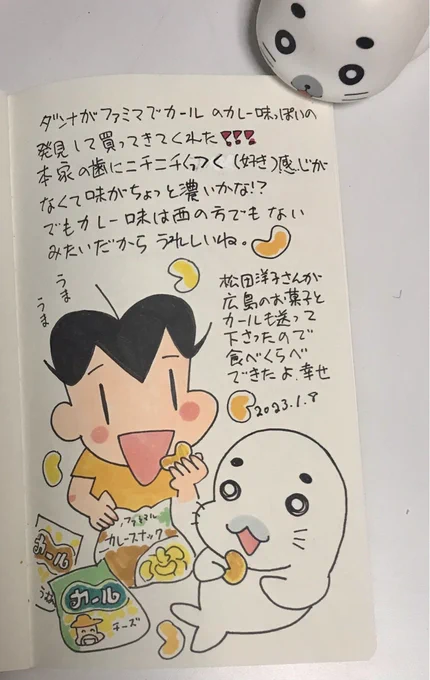 ダンナがファミマでカール のカレー味っぽいの
発見して買ってきてくれた!!!
本家の歯にニチニチくっつく(好き)感じが
なくて味がちょっと濃いかな!?
でもカレー味は西の方でもない
みたいだからうれしいね。
うま
うま
松田洋子さんが
広島のお菓子と
カールも送って
下さったので
食べくらべ
できたよ。幸せ
2023.1.8
カレースナック
カール
うす
カール
チーズ